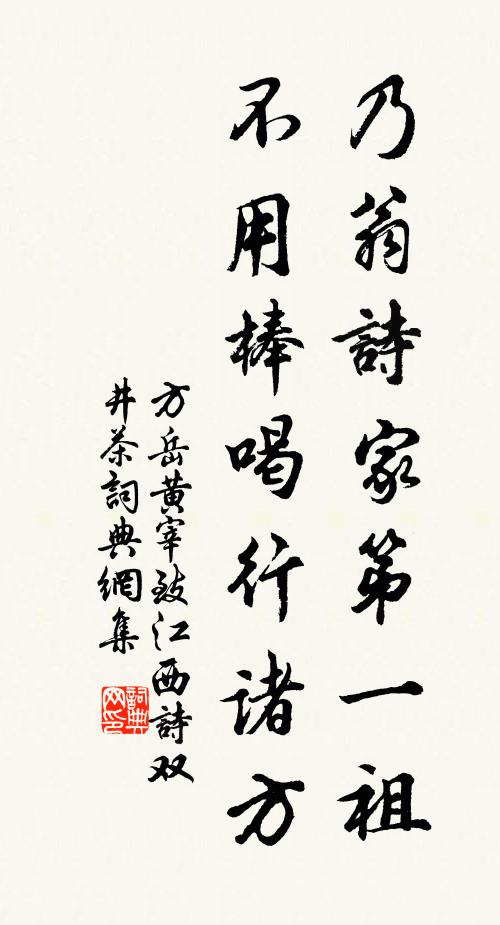 乃翁詩家第一祖
不用棒喝行諸方
方岳黄宰致江西詩双
井茶詞典網集
詞典网印